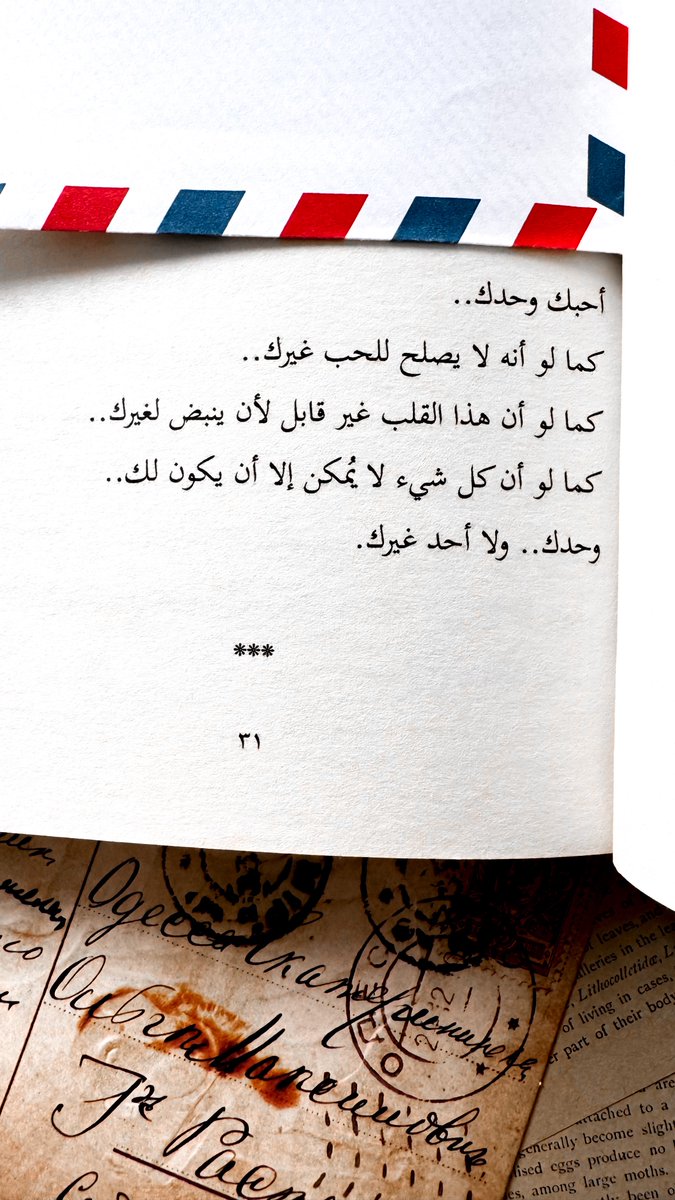 أحبك وحدك..
كما لو أنه لا يصلح للحب غيرك..
كما لو أن هذا القلب غير قابل لأن ينبض لغيرك..
كما لو أن كل شيء لا يُمكن إلا أن يكون لك..
وحدك.. ولا أحد غيرك.
***
٣١
Одесса
leaves, and
galleries in the
Lithocolletidæ, L
of living in cases,
part of their body
are
attached to a
generally become slight
eggs produce no
among large moths.
been o